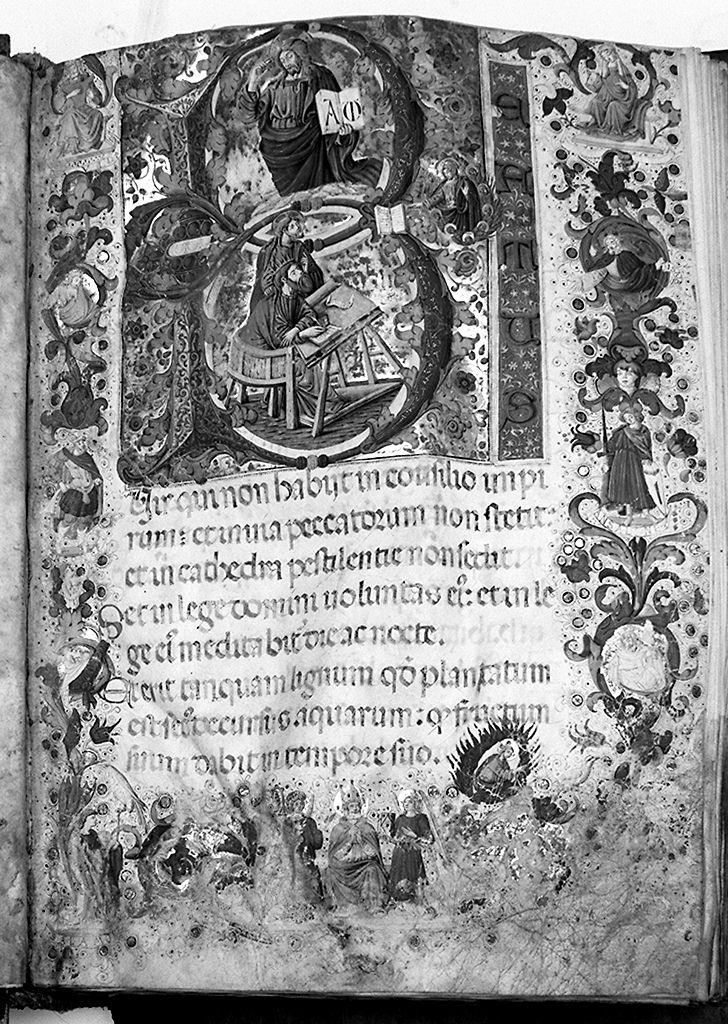 A ω
B
EATUS
Vir qui non habijt in consilio impi
rum: et in uia peccatorum non stetit:
et in cathedra pestilentie nōn sedit.
Set in lege domini uoluntas ei: et in le
ge ei meditabit die ac nocte.
Et erit tanquam lignum qd̄ plantatum
est sec decursus aquarum: qd̄ fructum
suum dabit in tempore suo.